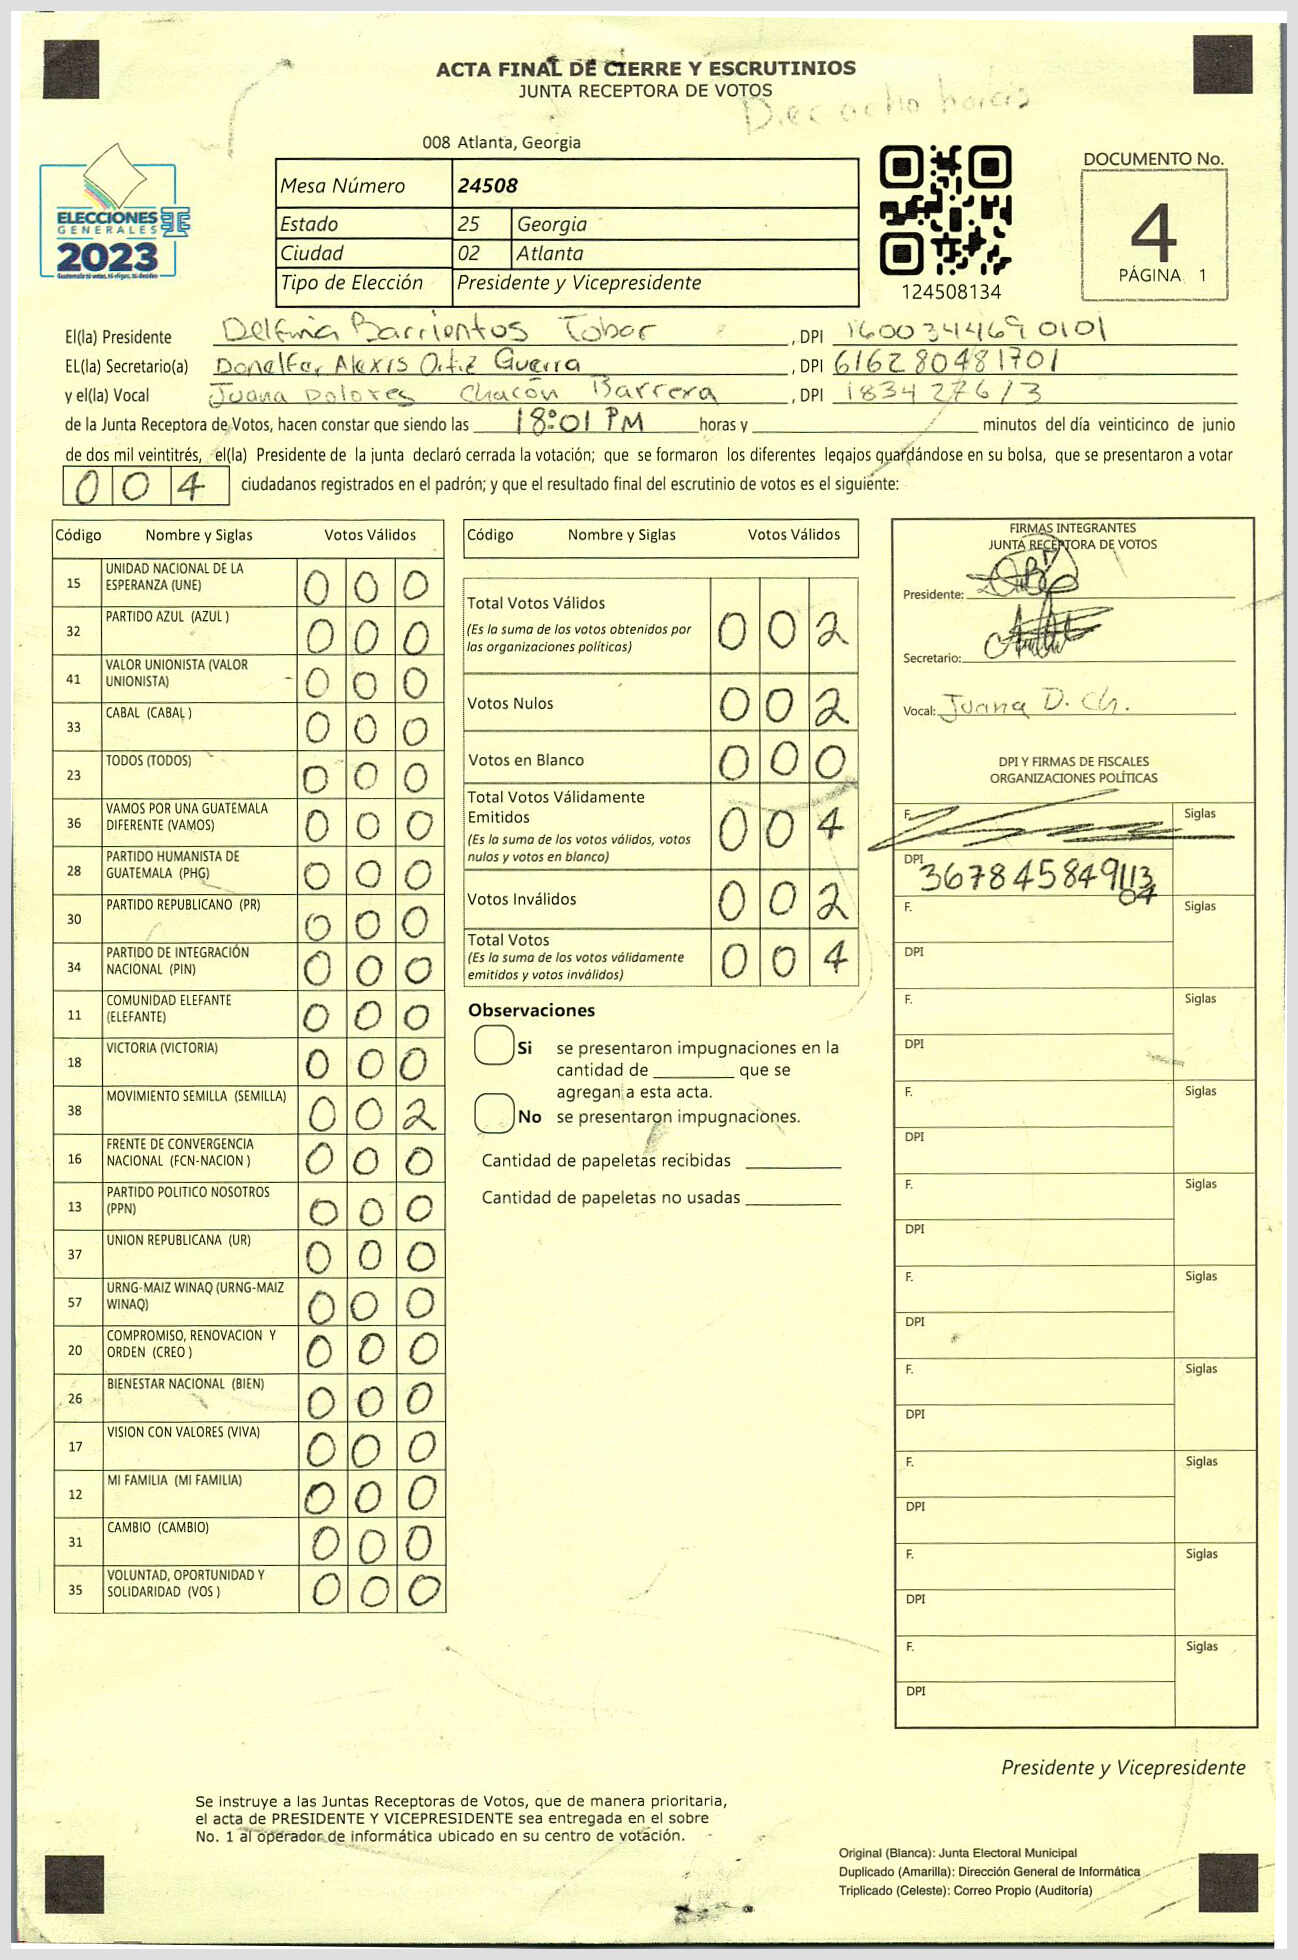 ACTA FINAL DE CIERRE Y ESCRUTINIOS
JUNTA RECEPTORA DE VOTOS
Dieciocho horas
008 Atlanta, Georgia
Mesa Número 24508
Estado 25 Georgia
Ciudad 02 Atlanta
Tipo de Elección Presidente y Vicepresidente
ELECCIONES
GENERALES
2023
124508134
DOCUMENTO No.
4
PÁGINA 1
El(la) Presidente Delfina Barrientos Tobar, DPI 1600344690101
EL(la) Secretario(a) Donelfer Alexis Ortiz Guerra, DPI 616280481701
y el(la) Vocal Juana Dolores Chacón Barrera, DPI 1834
de la Junta Receptora de Votos, hacen constar que siendo las 18:01 PM horas y ____ minutos del día veinticinco de junio
de dos mil veintitrés, el(la) Presidente de la junta declaró cerrada la votación; que se formaron los diferentes legajos guardándose en su bolsa, que se presentaron a votar
0 0 4 ciudadanos registrados en el padrón; y que el resultado final del escrutinio de votos es el siguiente:
Código Nombre y Siglas Votos Válidos
15 UNIDAD NACIONAL DE LA ESPERANZA (UNE) 0 0 0
32 PARTIDO AZUL (AZUL ) 0 0 0
41 VALOR UNIONISTA (VALOR UNIONISTA) 0 0 0
33 CABAL (CABAL ) 0 0 0
23 TODOS (TODOS) 0 0 0
36 VAMOS POR UNA GUATEMALA DIFERENTE (VAMOS) 0 0 0
28 PARTIDO HUMANISTA DE GUATEMALA (PHG) 0 0 0
30 PARTIDO REPUBLICANO (PR) 0 0 0
34 PARTIDO DE INTEGRACIÓN NACIONAL (PIN) 0 0 0
11 COMUNIDAD ELEFANTE (ELEFANTE) 0 0 0
18 VICTORIA (VICTORIA) 0 0 0
38 MOVIMIENTO SEMILLA (SEMILLA) 0 0 2
16 FRENTE DE CONVERGENCIA NACIONAL (FCN-NACION ) 0 0 0
13 PARTIDO POLITICO NOSOTROS (PPN) 0 0 0
37 UNION REPUBLICANA (UR) 0 0 0
57 URNG-MAIZ WINAQ (URNG-MAIZ WINAQ) 0 0 0
20 COMPROMISO, RENOVACION Y ORDEN (CREO ) 0 0 0
26 BIENESTAR NACIONAL (BIEN) 0 0 0
17 VISION CON VALORES (VIVA) 0 0 0
12 MI FAMILIA (MI FAMILIA) 0 0 0
31 CAMBIO (CAMBIO) 0 0 0
35 VOLUNTAD, OPORTUNIDAD Y SOLIDARIDAD (VOS ) 0 0 0
Código Nombre y Siglas Votos Válidos
Total Votos Válidos 0 0 2
(Es la suma de los votos obtenidos por
las organizaciones políticas)
Votos Nulos 0 0 2
Votos en Blanco 0 0 0
Total Votos Válidamente
Emitidos 0 0 4
(Es la suma de los votos válidos, votos
nulos y votos en blanco)
Votos Inválidos 0 0 2
Total Votos 0 0 4
(Es la suma de los votos válidamente
emitidos y votos inválidos)
Observaciones
Si se presentaron impugnaciones en la
cantidad de ____ que se
agregan a esta acta.
No se presentaron impugnaciones.
Cantidad de papeletas recibidas ____
Cantidad de papeletas no usadas ____
FIRMAS INTEGRANTES
JUNTA RECEPTORA DE VOTOS
Presidente:
Secretario:
Vocal: Juana D. Ch.
DPI Y FIRMAS DE FISCALES
ORGANIZACIONES POLÍTICAS
F. Siglas
DPI 367845849113
F. Siglas
DPI
F. Siglas
DPI
F. Siglas
DPI
F. Siglas
DPI
F. Siglas
DPI
F. Siglas
DPI
F. Siglas
DPI
F. Siglas
DPI
F. Siglas
DPI
Presidente y Vicepresidente
Se instruye a las Juntas Receptoras de Votos, que de manera prioritaria,
el acta de PRESIDENTE Y VICEPRESIDENTE sea entregada en el sobre
No. 1 al operador de informática ubicado en su centro de votación.
Original (Blanca): Junta Electoral Municipal
Duplicado (Amarilla): Dirección General de Informática
Triplicado (Celeste): Correo Propio (Auditoría)